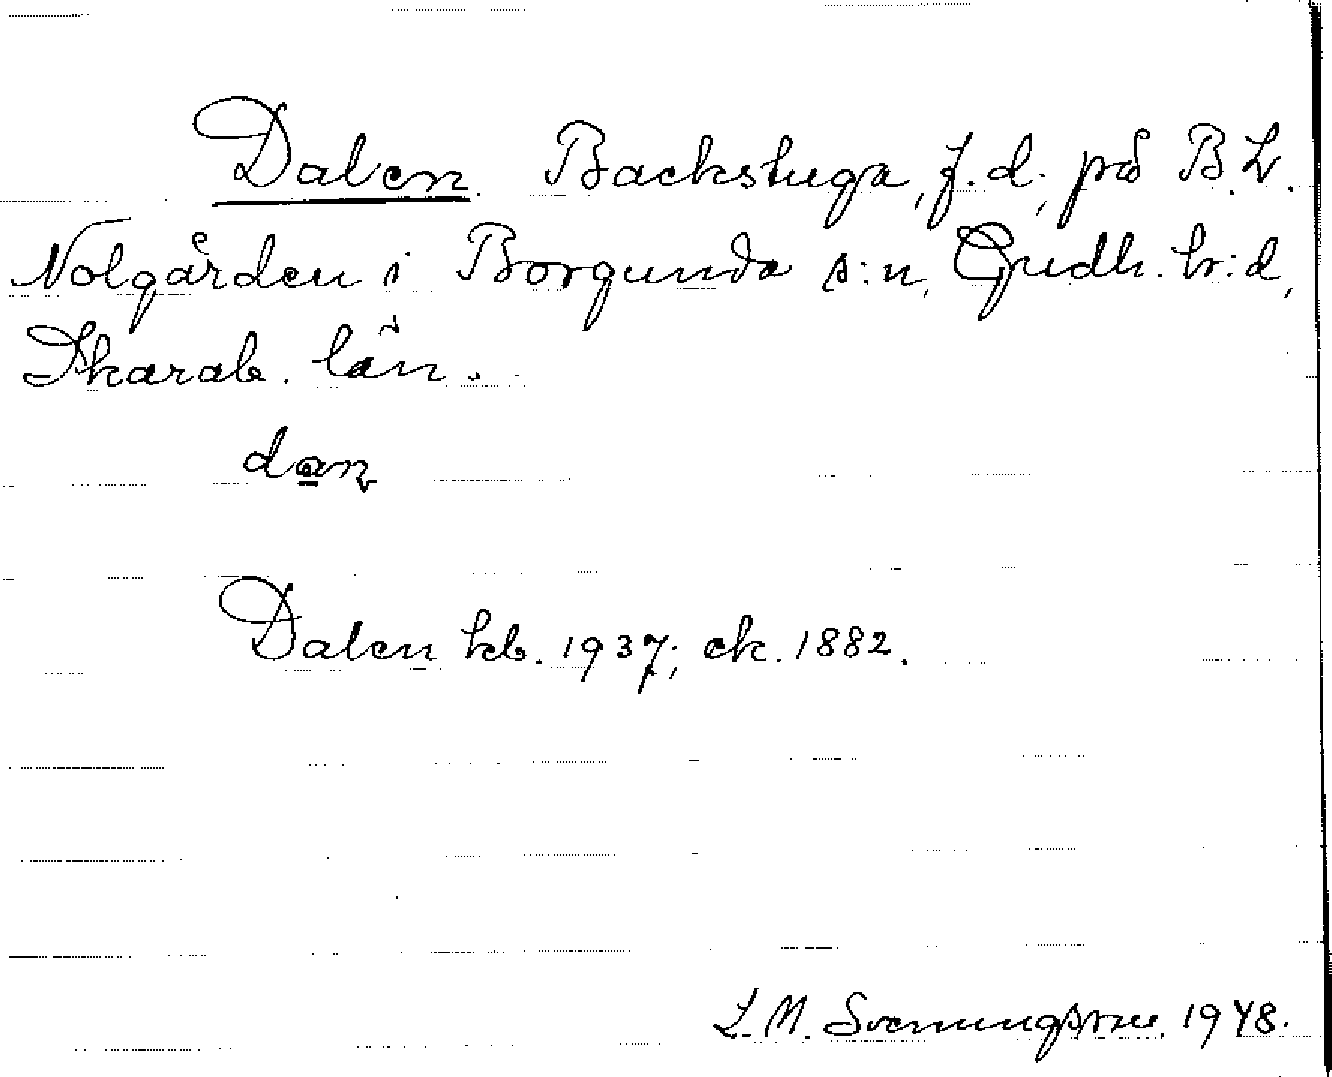 Dalen. Backstuga, f. d., på B. L.
Nolgården i Borgunda s:n, Gudh. hr:d,
Skarab. län.
dan
Dalen kb. 1937; ek. 1882.
L. M. Svenungsson. 1948.